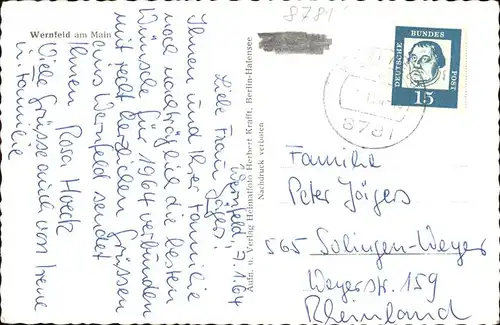 8781
Wernfeld am Main
Wernfeld, 7.1.64
Liebe Frau Jögers.
Ihnen und Ihrer Familie
noch nachträglich die besten
Wünsche für 1964 verbunden
mit recht herzlichen Grüssen
aus Wernfeld sendet
Ihnen Rosa Hock
Viele Grüsse auch von Irene
u. Familie
Aufn. u. Verlag Heimatfoto Herbert Krafft, Berlin-Halensee
Nachdruck verboten
DEUTSCHE
BUNDES
POST
15
8781
Familie
Peter Jögers
565 Solingen-Weyer
Weyerstr. 159
Rheinland